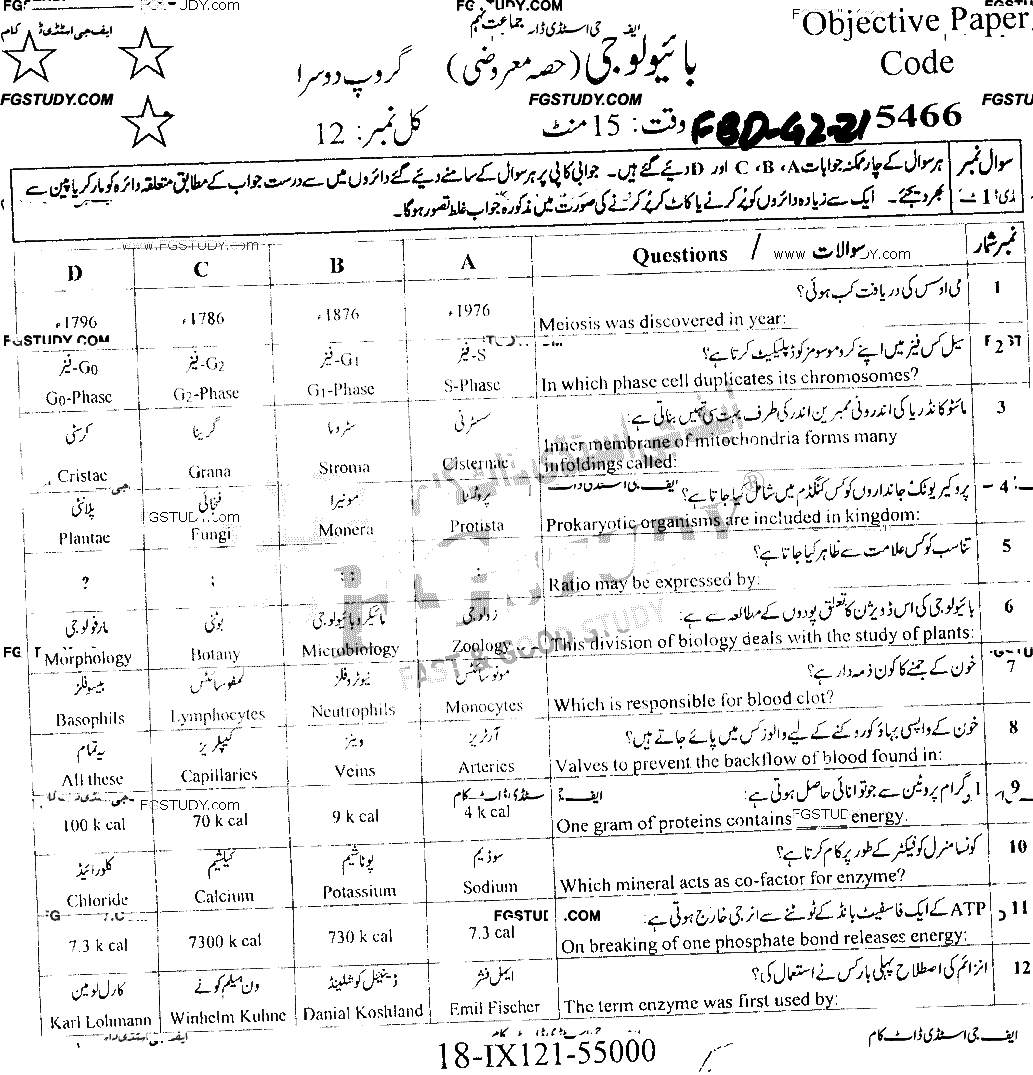 FGSTUDY.COM
Objective Paper
Code
ایف جی اسٹڈی ڈاٹ کام
جماعت نہم
بائیولوجی (حصہ معروضی)
گروپ دوسرا
FGSTUDY.COM
FGSTUDY.COM
FGSTU
5466
FBD-G2-21
وقت: 15 منٹ
کل نمبر: 12
سوال نمبر 1
ہر سوال کے چار ممکنہ جوابات A، B، C اور D دیئے گئے ہیں۔ جوابی کاپی پر ہر سوال کے سامنے دیئے گئے دائروں میں سے درست جواب کے مطابق متعلقہ دائرہ کو مارکر یا پین سے
بھر دیجئے۔ ایک سے زیادہ دائروں کو پُر کرنے یا کاٹ کر پُر کرنے کی صورت میں مذکورہ جواب غلط تصور ہوگا۔
www.FGSTUDY.com
D C B A Questions / سوالات نمبر شمار
1 می اوسس کی دریافت کب ہوئی؟
1796ء 1786ء 1876ء 1976ء
Meiosis was discovered in year:
2 سیل کس فیز میں اپنے کروموسومز کو ڈپلیکیٹ کرتا ہے؟
G0-فیز G2-فیز G1-فیز S-فیز
G0-Phase G2-Phase G1-Phase S-Phase In which phase cell duplicates its chromosomes?
3 مائٹوکانڈریا کی اندرونی ممبرین اندر کی طرف بہت سی تہیں بناتی ہے:
کرسٹی گرینا سٹروما سسٹرنی
Inner membrane of mitochondria forms many
Cristae Grana Stroma Cisternae infoldings called:
4 پروکیریوٹک جانداروں کو کس کنگڈم میں شامل کیا جاتا ہے؟
پلانٹی فنجائی مونیرا پروٹسٹا
Plantae Fungi Monera Protista Prokaryotic organisms are included in kingdom:
5 تناسب کو کس علامت سے ظاہر کیا جاتا ہے؟
? ; : :
Ratio may be expressed by:
6 بائیولوجی کی اس ڈویژن کا تعلق پودوں کے مطالعہ سے ہے:
مارفولوجی بوٹنی مائیکروبائیولوجی زولوجی
Morphology Botany Microbiology Zoology This division of biology deals with the study of plants:
7 خون کے جمنے کا کون ذمہ دار ہے؟
بیسوفلز لمفوسائٹس نیوٹروفلز مونوسائٹس
Basophils Lymphocytes Neutrophils Monocytes Which is responsible for blood clot?
8 خون کے واپسی بہاؤ کو روکنے کے لیے والوز کس میں پائے جاتے ہیں؟
یہ تمام کیپلریز وینز آرٹریز
All these Capillaries Veins Arteries Valves to prevent the backflow of blood found in:
9 1 گرام پروٹین سے جو توانائی حاصل ہوتی ہے:
FGSTUDY.com
100 k cal 70 k cal 9 k cal 4 k cal One gram of proteins contains energy.
10 کونسا منرل کو فیکٹر کے طور پر کام کرتا ہے؟
کلورائیڈ کیلشیم پوٹاشیم سوڈیم
Chloride Calcium Potassium Sodium Which mineral acts as co-factor for enzyme?
11 ATP کے ایک فاسفیٹ بانڈ کے ٹوٹنے سے انرجی خارج ہوتی ہے:
7.3 k cal 7300 k cal 730 k cal 7.3 cal On breaking of one phosphate bond releases energy:
12 انزائم کی اصطلاح پہلی بار کس نے استعمال کی؟
کارل لومین ون ہیلم کوہنے ڈینیئل کوشلینڈ ایمل فشر
Karl Lohmann Winhelm Kuhne Danial Koshland Emil Fischer The term enzyme was first used by:
FAST & GOOD STUDY
ایف جی اسٹڈی ڈاٹ کام
18-IX121-55000